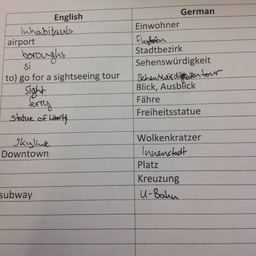 English German
Inhabitants Einwohner
airport Flughafen
boroughs Stadtbezirk
Si Sehenswürdigkeit
to) go for a sightseeing tour
Sight Blick, Ausblick
ferry Fähre
Statue of Liberty Freiheitsstatue
Skyline Wolkenkratzer
Downtown Innenstadt
Platz
Kreuzung
subway U-Bahn